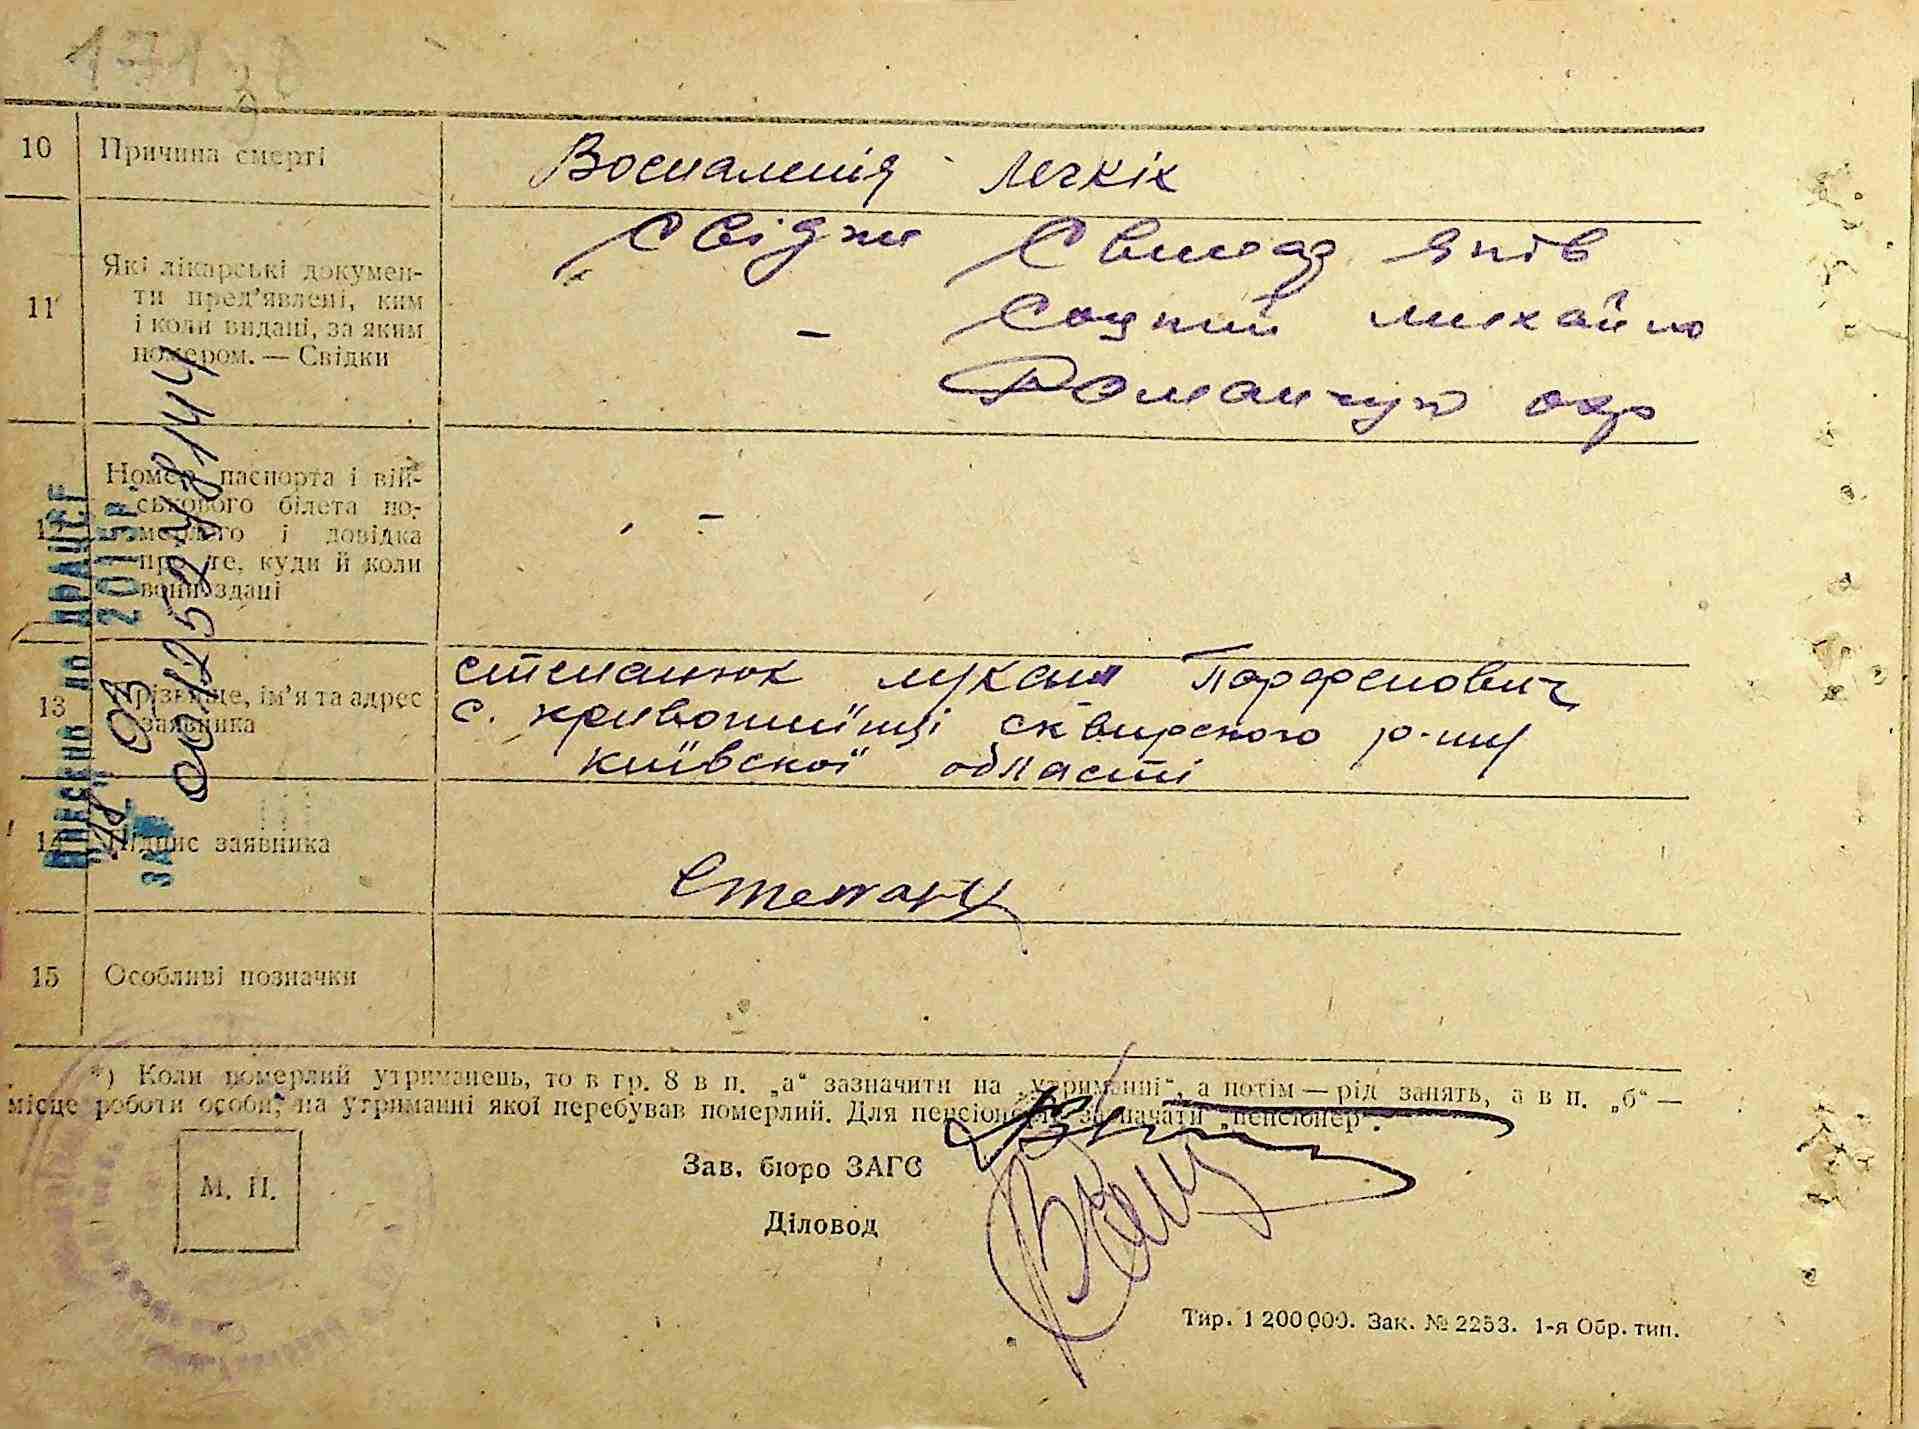 10 Причина смерті
Воспаленія Легкіх
11 Які лікарські докумен-
ти пред'явлені, ким
і коли видані, за яким
номером. — Свідки
Свідки
Михайло
Романчук
12 Номер паспорта і вій-
ськового білета по-
мерлого і довідка
про те, куди й коли
вони здані
13 Прізвище, ім'я та адрес
заявника
Степанюк Лукаш Парфенович
с. Кривошиїнці Сквирского р-ну
Київскої області
14 Підпис заявника
Степаню
15 Особливі позначки
*) Коли померлий утриманець, то в гр. 8 в п. „а“ зазначити на „утриманні“, а потім — рід занять, а в п. „б“ —
місце роботи особи, на утриманні якої перебував померлий. Для пенсіонерів зазначати „пенсіонер“.
Зав. бюро ЗАГС
М. П.
Діловод
Тир. 1 200 000. Зак. № 2253. 1-я Обр. тип.
ВНЕСЕНО ДО ДРАЦСГ
2015р.
ЗА №
00125278144